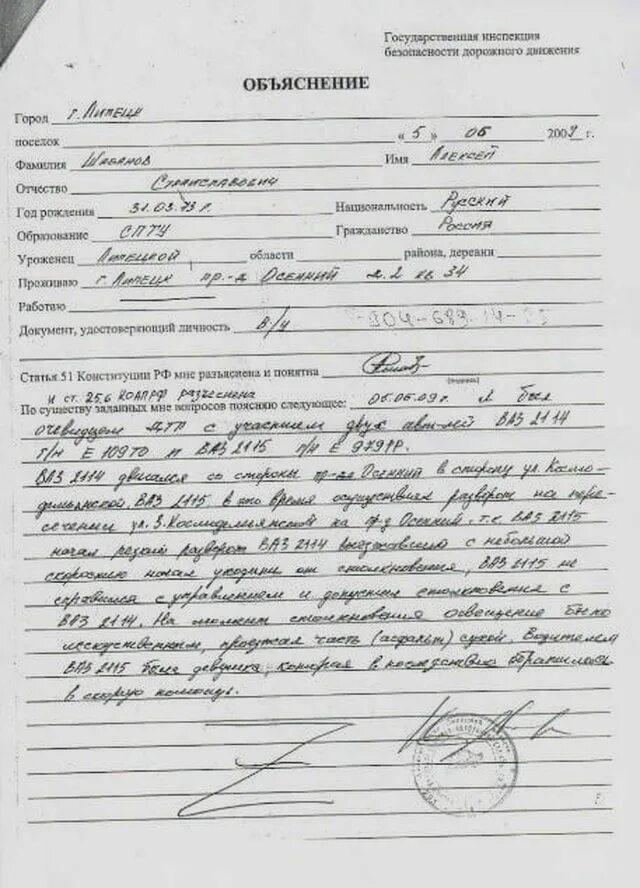 Государственная инспекция
безопасности дорожного движения
ОБЪЯСНЕНИЕ
Город г. Липецк
поселок « 5 » 06 2009 г.
Фамилия Шабанов Имя Алексей
Отчество Станиславович
Год рождения 31.03.73 г. Национальность Русский
Образование СПТУ Гражданство Россия
Уроженец Липецкой области района, деревни
Проживаю г. Липецк пр-д Осенний д.2 кв 34
Работаю
Документ, удостоверяющий личность в/у
Статья 51 Конституции РФ мне разъяснена и понятна
(подпись)
и ст. 25.6 КОАПРФ разъеснена
По существу заданных мне вопросов поясняю следующее: 05.06.09 г. Я был
очевидцем ДТП с участием двух авт-лей ВАЗ 2114
г/н Е 109ТО и ВАЗ 2115 г/н Е 979
ВАЗ 2114 двигался со стороны пр-да Осенний в сторону ул. Космо-
демьянской. ВАЗ 2115 в это время осуществлял разворот на пере-
сечении ул. З. Космодемьянской на п-д Осенний. т.к. ВАЗ 2115
начал разворот ВАЗ 2114 с небольшой
скоростью начал уходить от столкновения, ВАЗ 2115 не
справился с управлением и допустил столкновения с
ВАЗ 2114. На момент столкновения освещение было
исскуственным, проезжая часть (асфальт) сухой. Водителем
ВАЗ 2115 была девушка, которая в последствие обратилась
в скорую помощь.